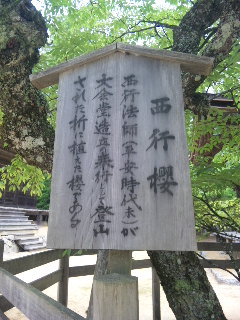 西行櫻
西行法師(平安時代末)が
大会堂造立奉行として登山
された折に植えた櫻である